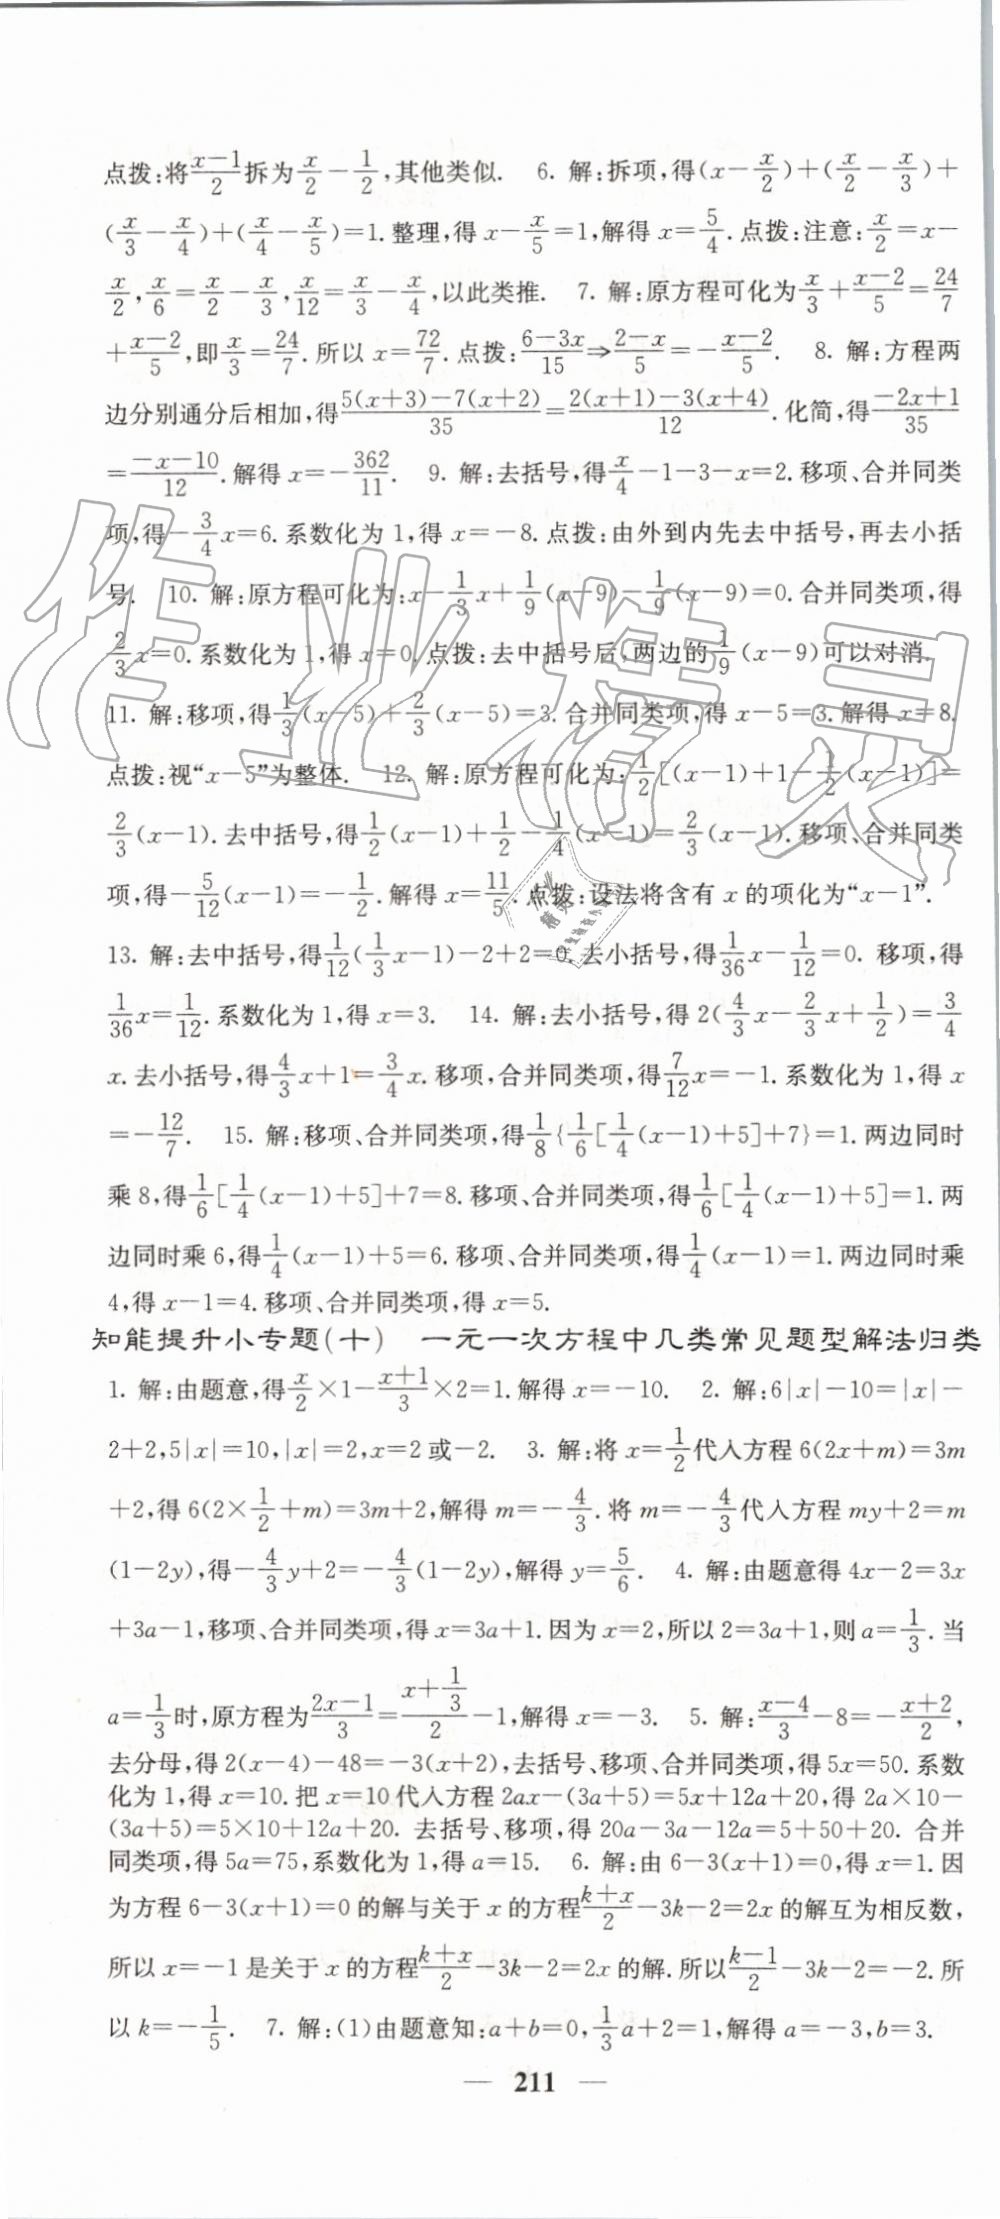 点拨:将\frac{x-1}{2}拆为\frac{x}{2}-\frac{1}{2},其他类似. 6. 解:拆项,得(x-\frac{x}{2})+(\frac{x}{2}-\frac{x}{3})+
(\frac{x}{3}-\frac{x}{4})+(\frac{x}{4}-\frac{x}{5})=1.整理,得 x-\frac{x}{5}=1,解得 x=\frac{5}{4}.点拨:注意:\frac{x}{2}=x-
\frac{x}{2},\frac{x}{6}=\frac{x}{2}-\frac{x}{3},\frac{x}{12}=\frac{x}{3}-\frac{x}{4},以此类推. 7. 解:原方程可化为\frac{x}{3}+\frac{x-2}{5}=\frac{24}{7}
+\frac{x-2}{5},即\frac{x}{3}=\frac{24}{7}.所以 x=\frac{72}{7}.点拨:\frac{6-3x}{15}⇒\frac{2-x}{5}=-\frac{x-2}{5}. 8. 解:方程两
边分别通分后相加,得\frac{5(x+3)-7(x+2)}{35}=\frac{2(x+1)-3(x+4)}{12}.化简,得\frac{-2x+1}{35}
=\frac{-x-10}{12}.解得 x=-\frac{362}{11}. 9. 解:去括号,得\frac{x}{4}-1-3-x=2.移项、合并同类
项,得-\frac{3}{4}x=6.系数化为 1,得 x=-8.点拨:由外到内先去中括号,再去小括
号. 10. 解:原方程可化为:x-\frac{1}{3}x+\frac{1}{9}(x-9)-\frac{1}{9}(x-9)=0.合并同类项,得
\frac{2}{3}x=0.系数化为 1,得 x=0.点拨:去中括号后,两边的\frac{1}{9}(x-9)可以对消.
11. 解:移项,得\frac{1}{3}(x-5)+\frac{2}{3}(x-5)=3.合并同类项,得 x-5=3.解得 x=8.
点拨:视“x-5”为整体. 12. 解:原方程可化为:\frac{1}{2}[(x-1)+1-\frac{1}{2}(x-1)]=
\frac{2}{3}(x-1).去中括号,得\frac{1}{2}(x-1)+\frac{1}{2}-\frac{1}{4}(x-1)=\frac{2}{3}(x-1).移项、合并同类
项,得-\frac{5}{12}(x-1)=-\frac{1}{2}.解得 x=\frac{11}{5}.点拨:设法将含有 x 的项化为“x-1”.
13. 解:去中括号,得\frac{1}{12}(\frac{1}{3}x-1)-2+2=0.去小括号,得\frac{1}{36}x-\frac{1}{12}=0. 移项,得
\frac{1}{36}x=\frac{1}{12}.系数化为 1,得 x=3. 14. 解:去小括号,得 2(\frac{4}{3}x-\frac{2}{3}x+\frac{1}{2})=\frac{3}{4}
x.去小括号,得\frac{4}{3}x+1=\frac{3}{4}x.移项,合并同类项,得\frac{7}{12}x=-1.系数化为 1,得 x
=-\frac{12}{7}. 15. 解:移项、合并同类项,得\frac{1}{8}{\frac{1}{6}[\frac{1}{4}(x-1)+5]+7}=1.两边同时
乘 8,得\frac{1}{6}[\frac{1}{4}(x-1)+5]+7=8.移项、合并同类项,得\frac{1}{6}[\frac{1}{4}(x-1)+5]=1.两
边同时乘 6,得\frac{1}{4}(x-1)+5=6.移项、合并同类项,得\frac{1}{4}(x-1)=1.两边同时乘
4,得 x-1=4.移项、合并同类项,得 x=5.
知能提升小专题(十) 一元一次方程中几类常见题型解法归类
1. 解:由题意,得\frac{x}{2}×1-\frac{x+1}{3}×2=1.解得 x=-10. 2. 解:6|x|-10=|x|-
2+2,5|x|=10,|x|=2,x=2 或-2. 3. 解:将 x=\frac{1}{2}代入方程 6(2x+m)=3m
+2,得 6(2×\frac{1}{2}+m)=3m+2,解得 m=-\frac{4}{3}.将 m=-\frac{4}{3}代入方程 my+2=m
(1-2y),得-\frac{4}{3}y+2=-\frac{4}{3}(1-2y),解得 y=\frac{5}{6}. 4. 解:由题意得 4x-2=3x
+3a-1,移项、合并同类项,得 x=3a+1.因为 x=2,所以 2=3a+1,则 a=\frac{1}{3}.当
a=\frac{1}{3}时,原方程为\frac{2x-1}{3}=\frac{x+\frac{1}{3}}{2}-1,解得 x=-3. 5. 解:\frac{x-4}{3}-8=-\frac{x+2}{2},
去分母,得 2(x-4)-48=-3(x+2),去括号、移项、合并同类项,得 5x=50.系数
化为 1,得 x=10.把 x=10代入方程 2ax-(3a+5)=5x+12a+20,得 2a×10-
(3a+5)=5×10+12a+20. 去括号、移项,得 20a-3a-12a=5+50+20. 合并
同类项,得 5a=75,系数化为 1,得 a=15. 6. 解:由 6-3(x+1)=0,得 x=1.因
为方程 6-3(x+1)=0 的解与关于 x 的方程\frac{k+x}{2}-3k-2=2x 的解互为相反数,
所以 x=-1 是关于 x 的方程\frac{k+x}{2}-3k-2=2x 的解.所以\frac{k-1}{2}-3k-2=-2.所
以 k=-\frac{1}{5}. 7. 解:(1)由题意知:a+b=0,\frac{1}{3}a+2=1,解得 a=-3,b=3.
— 211 —
作业精灵